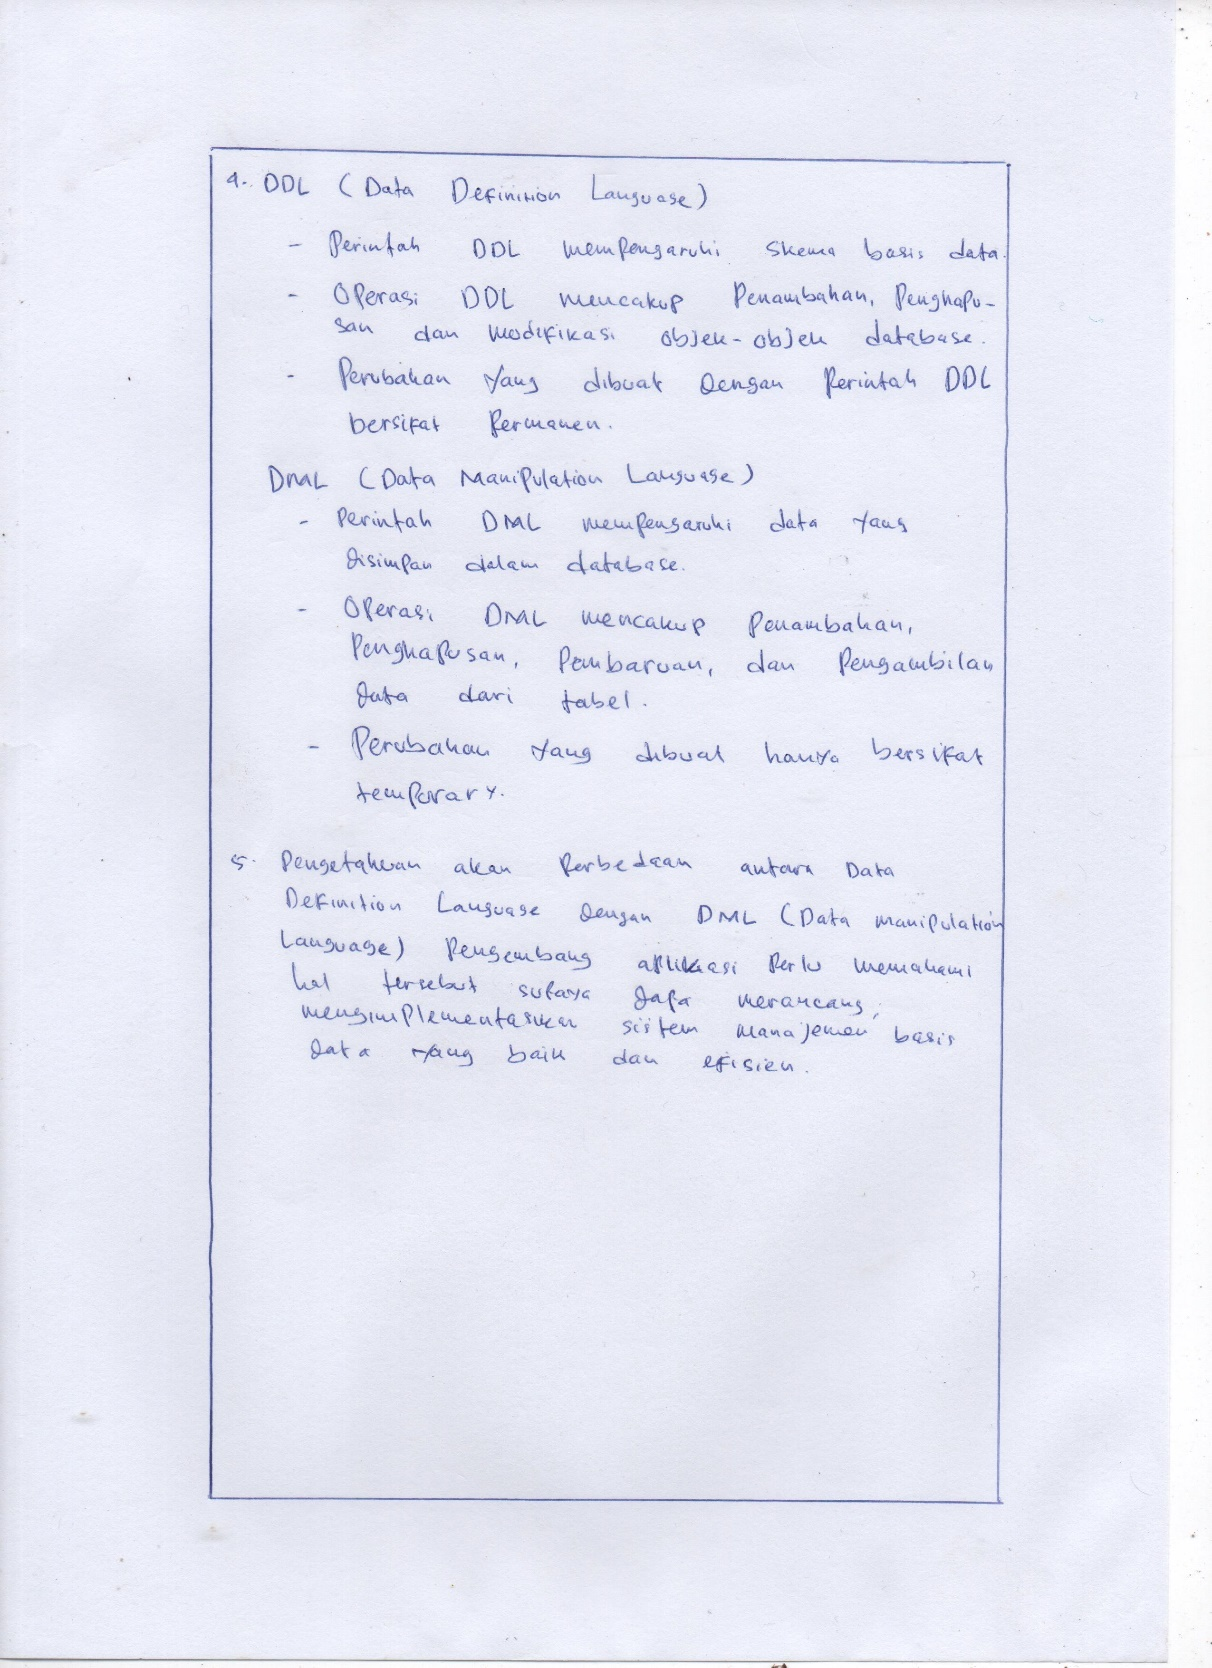 4. DDL (Data Definition Language)
- Perintah DDL mempengaruhi skema basis data.
- Operasi DDL mencakup Penambahan, Penghapu-
san dan modifikasi objek-objek database.
- Perubahan yang dibuat dengan Perintah DDL
bersifat Permanen.
DML (Data Manipulation Language)
- Perintah DML mempengaruhi data yang
disimpan dalam database.
- Operasi DML mencakup Penambahan,
Penghapusan, Pembaruan, dan Pengambilan
data dari tabel.
- Perubahan yang dibuat hanya bersifat
temporary.
5. Pengetahuan akan Perbedaan antara Data
Definition Language dengan DML (Data manipulation
Language) Pengembang aplikasi Perlu memahami
hal tersebut supaya dapa merancang,
mengimplementasikan sistem manajemen basis
data yang baik dan efisien.